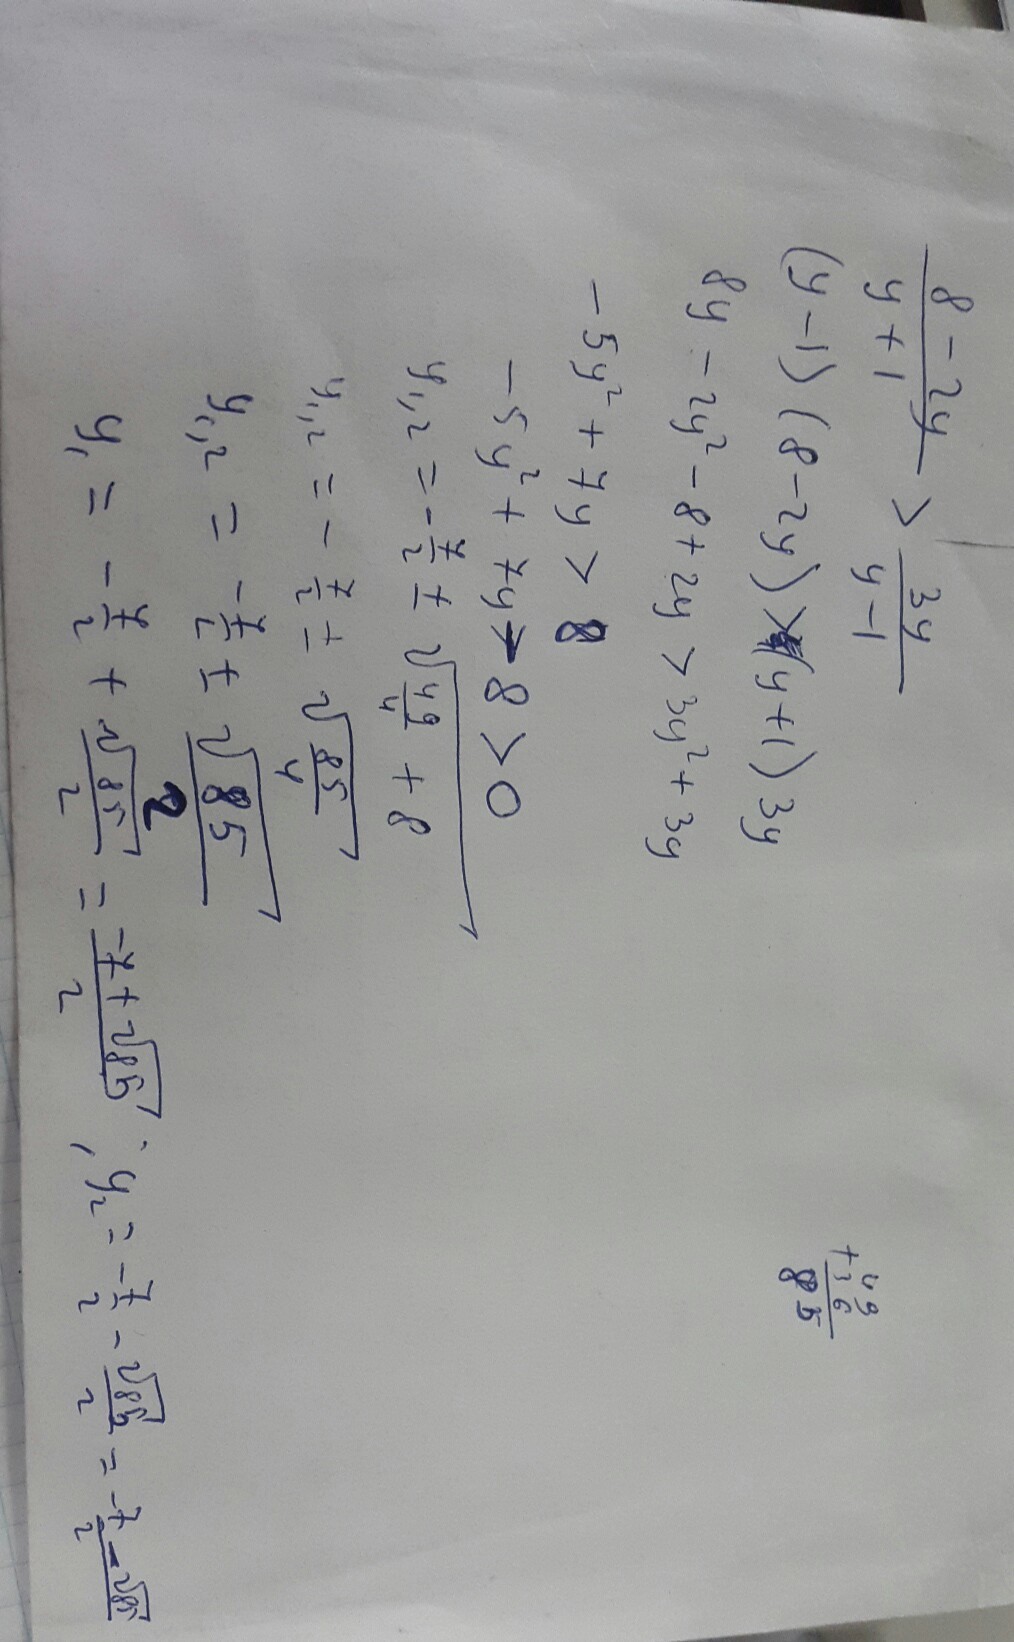 (8 - 2y)/(y + 1) > 3y/(y - 1)
(y - 1)(8 - 2y) > (y + 1) 3y
8y - 2y² - 8 + 2y > 3y² + 3y
- 5y² + 7y > 8
- 5y² + 7y - 8 > 0
y₁,₂ = - 7/2 ± √(49/4 + 8)
y₁,₂ = - 7/2 ± √(85/4)
y₁,₂ = - 7/2 ± √85/2
y₁ = - 7/2 + √85/2 = (-7 + √85)/2 ; y₂ = - 7/2 - √85/2 = (-7 - √85)/2
49
+ 36
85